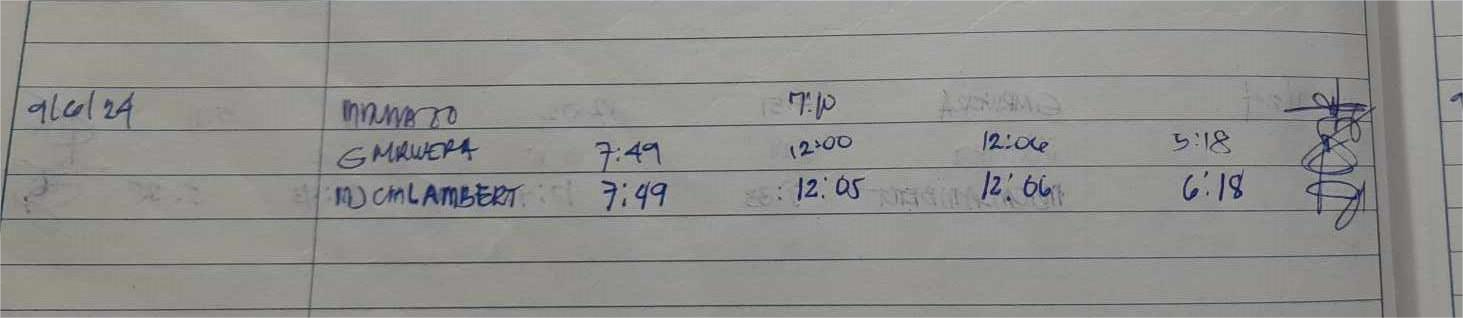 9/6/24 7:10
GMRWERA 7:49 12:00 12:06 5:18
MJCMLAMBERT 7:49 12:05 12:06 6:18